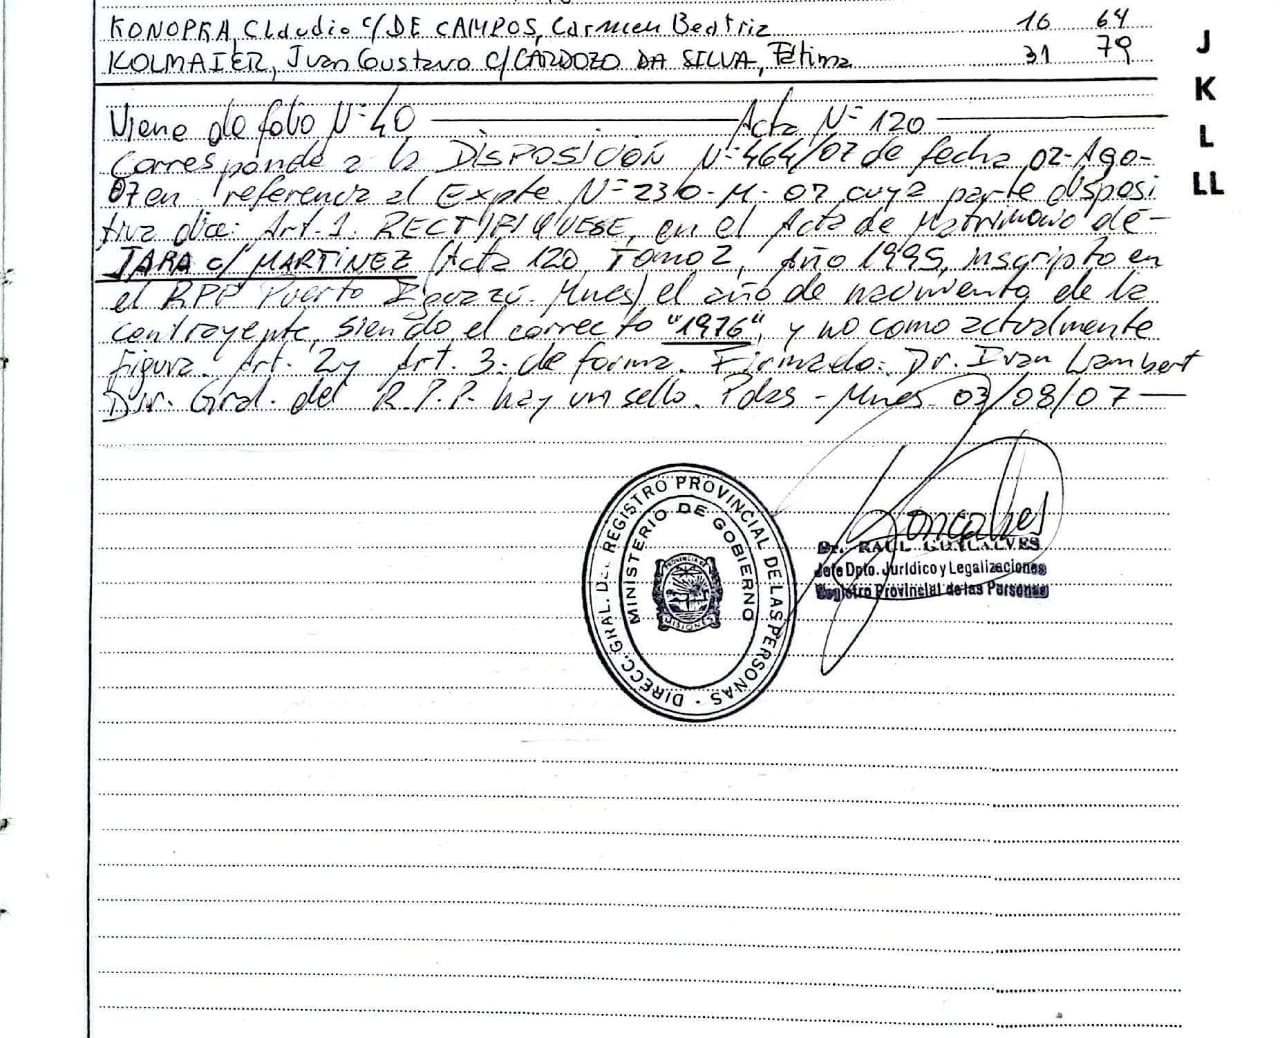 KONOPKA, Claudio c/ DE CAMPOS, Carmen Beatriz 16 64
KOLMAIER, Juan Gustavo c/ CARDOZO DA SILVA, Fátima 31 79
J
K
L
LL
Viene de folio Nº 40 — Acta Nº 120 —
Corresponde a la DISPOSICION Nº 464/07 de fecha 02-Ago-
07 en referencia al Expte Nº 230-M-07 cuya parte disposi
tiva dice: Art. 1. RECTIFIQUESE, en el Acta de Matrimonio de-
JARA c/ MARTINEZ (Acta 120, Tomo 2, Año 1995, inscripto en
el RPP Puerto Iguazú. Mnes) el año de nacimiento de la
contrayente, siendo el correcto "1976", y no como actualmente
figura. Art. 2 y Art. 3. de forma. Firmado: Dr. Ivan Lambert
Dir. Gral. del R.P.P. hay un sello. Pdas - Mnes 03/08/07 —
DIRECC. GRAL. DEL REGISTRO PROVINCIAL DE LAS PERSONAS -
MINISTERIO DE GOBIERNO
PROVINCIA DE
MISIONES
Goncalves
Dr. RAUL GONCALVES
Jefe Dpto. Jurídico y Legalizaciones
Registro Provincial de las Personas